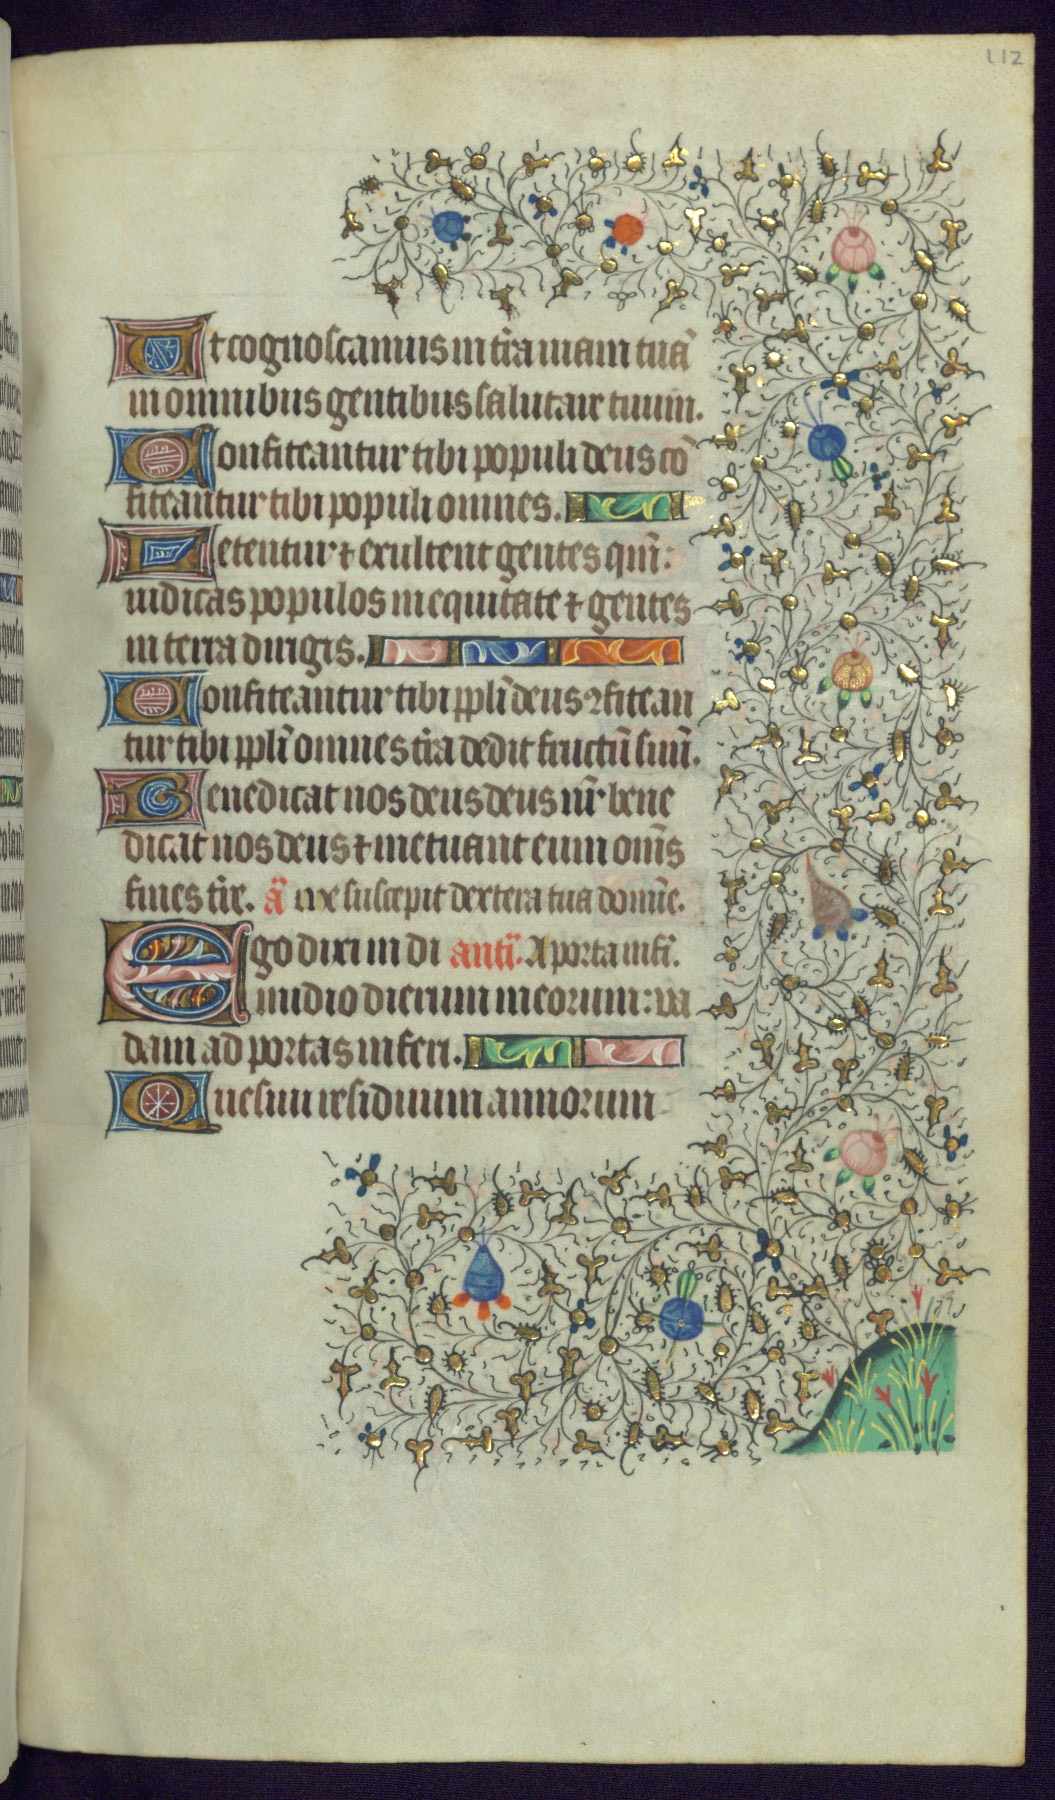 112
Ut cognoscamus in tr̄a uiam tuā
in omnibus gentibus salutare tuum.
Confiteantur tibi populi deus cō
fiteantur tibi populi omnes.
Letentur ⁊ exultent gentes qm̄:
iudicas populos in equitate ⁊ gentes
in terra dirigis.
Confiteantur tibi ppl̄i deus ꝯfitean
tur tibi ppl̄i omnes tr̄a dedit fructū suū.
Benedicat nos deus deus nr̄ bene
dicat nos deus ⁊ metuant eum om̄s
fines tr̄e. añ me suscepit dextera tua domīe.
Ego dixi in di antī. A porta infī.
imidio dierum meorum: ua
dam ad portas inferi.
Quesiui residuum annorum